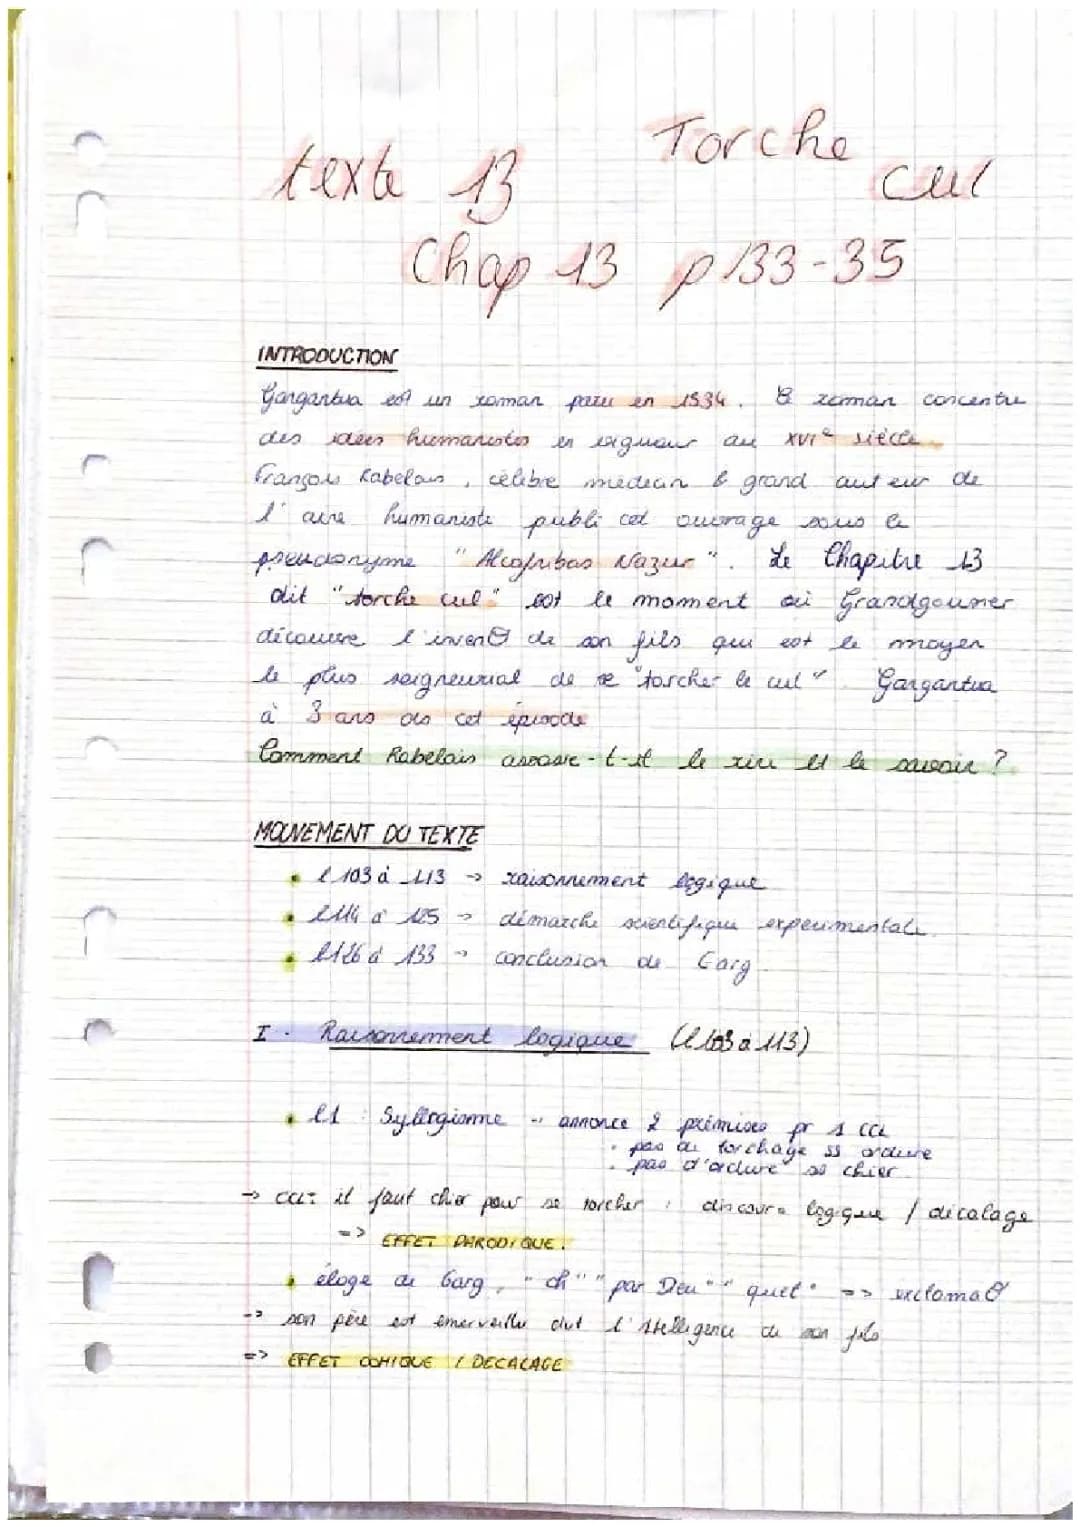 Torche
texte 13 cul
Chap 13 p 133-35
INTRODUCTION
Gargantua est un roman paru en 1534. Ce roman concentre
des idées humanistes en vigueur au XVIe siècle.
François Rabelais, célèbre médecin & grand auteur de
l'aire humaniste publi cet ouvrage sous le
pseudonyme "Alcofribas Nazier". Le Chapitre 13
dit "torche cul" est le moment où Grandgousier
découvre l'invenθ de son fils qui est le moyen
le plus seigneurial de se "torcher le cul". Gargantua
à 3 ans ds cet épisode
Comment Rabelais associe-t-il le rire et le savoir ?
MOUVEMENT DU TEXTE
• l 103 à 113 → raisonnement logique
• l 114 à 125 → démarche scientifique expérimentale.
• l 126 à 133 → conclusion de Garg.
I. Raisonnement logique (l 103 à 113)
• l1 : Syllogisme annonce 2 prémises pr 1 ccl
• pas de torchage ss ordure
• pas d'ordure ss chier
→ ccl: il faut chier pour se torcher discours logique / décalage
=> EFFET PARODIQUE.
• éloge de Garg, "oh" "par Dieu" "quel" => exclamaθ
-> son père est émerveillé dvt l'intelligence de son fils
=> EFFET COMIQUE / DECALAGE